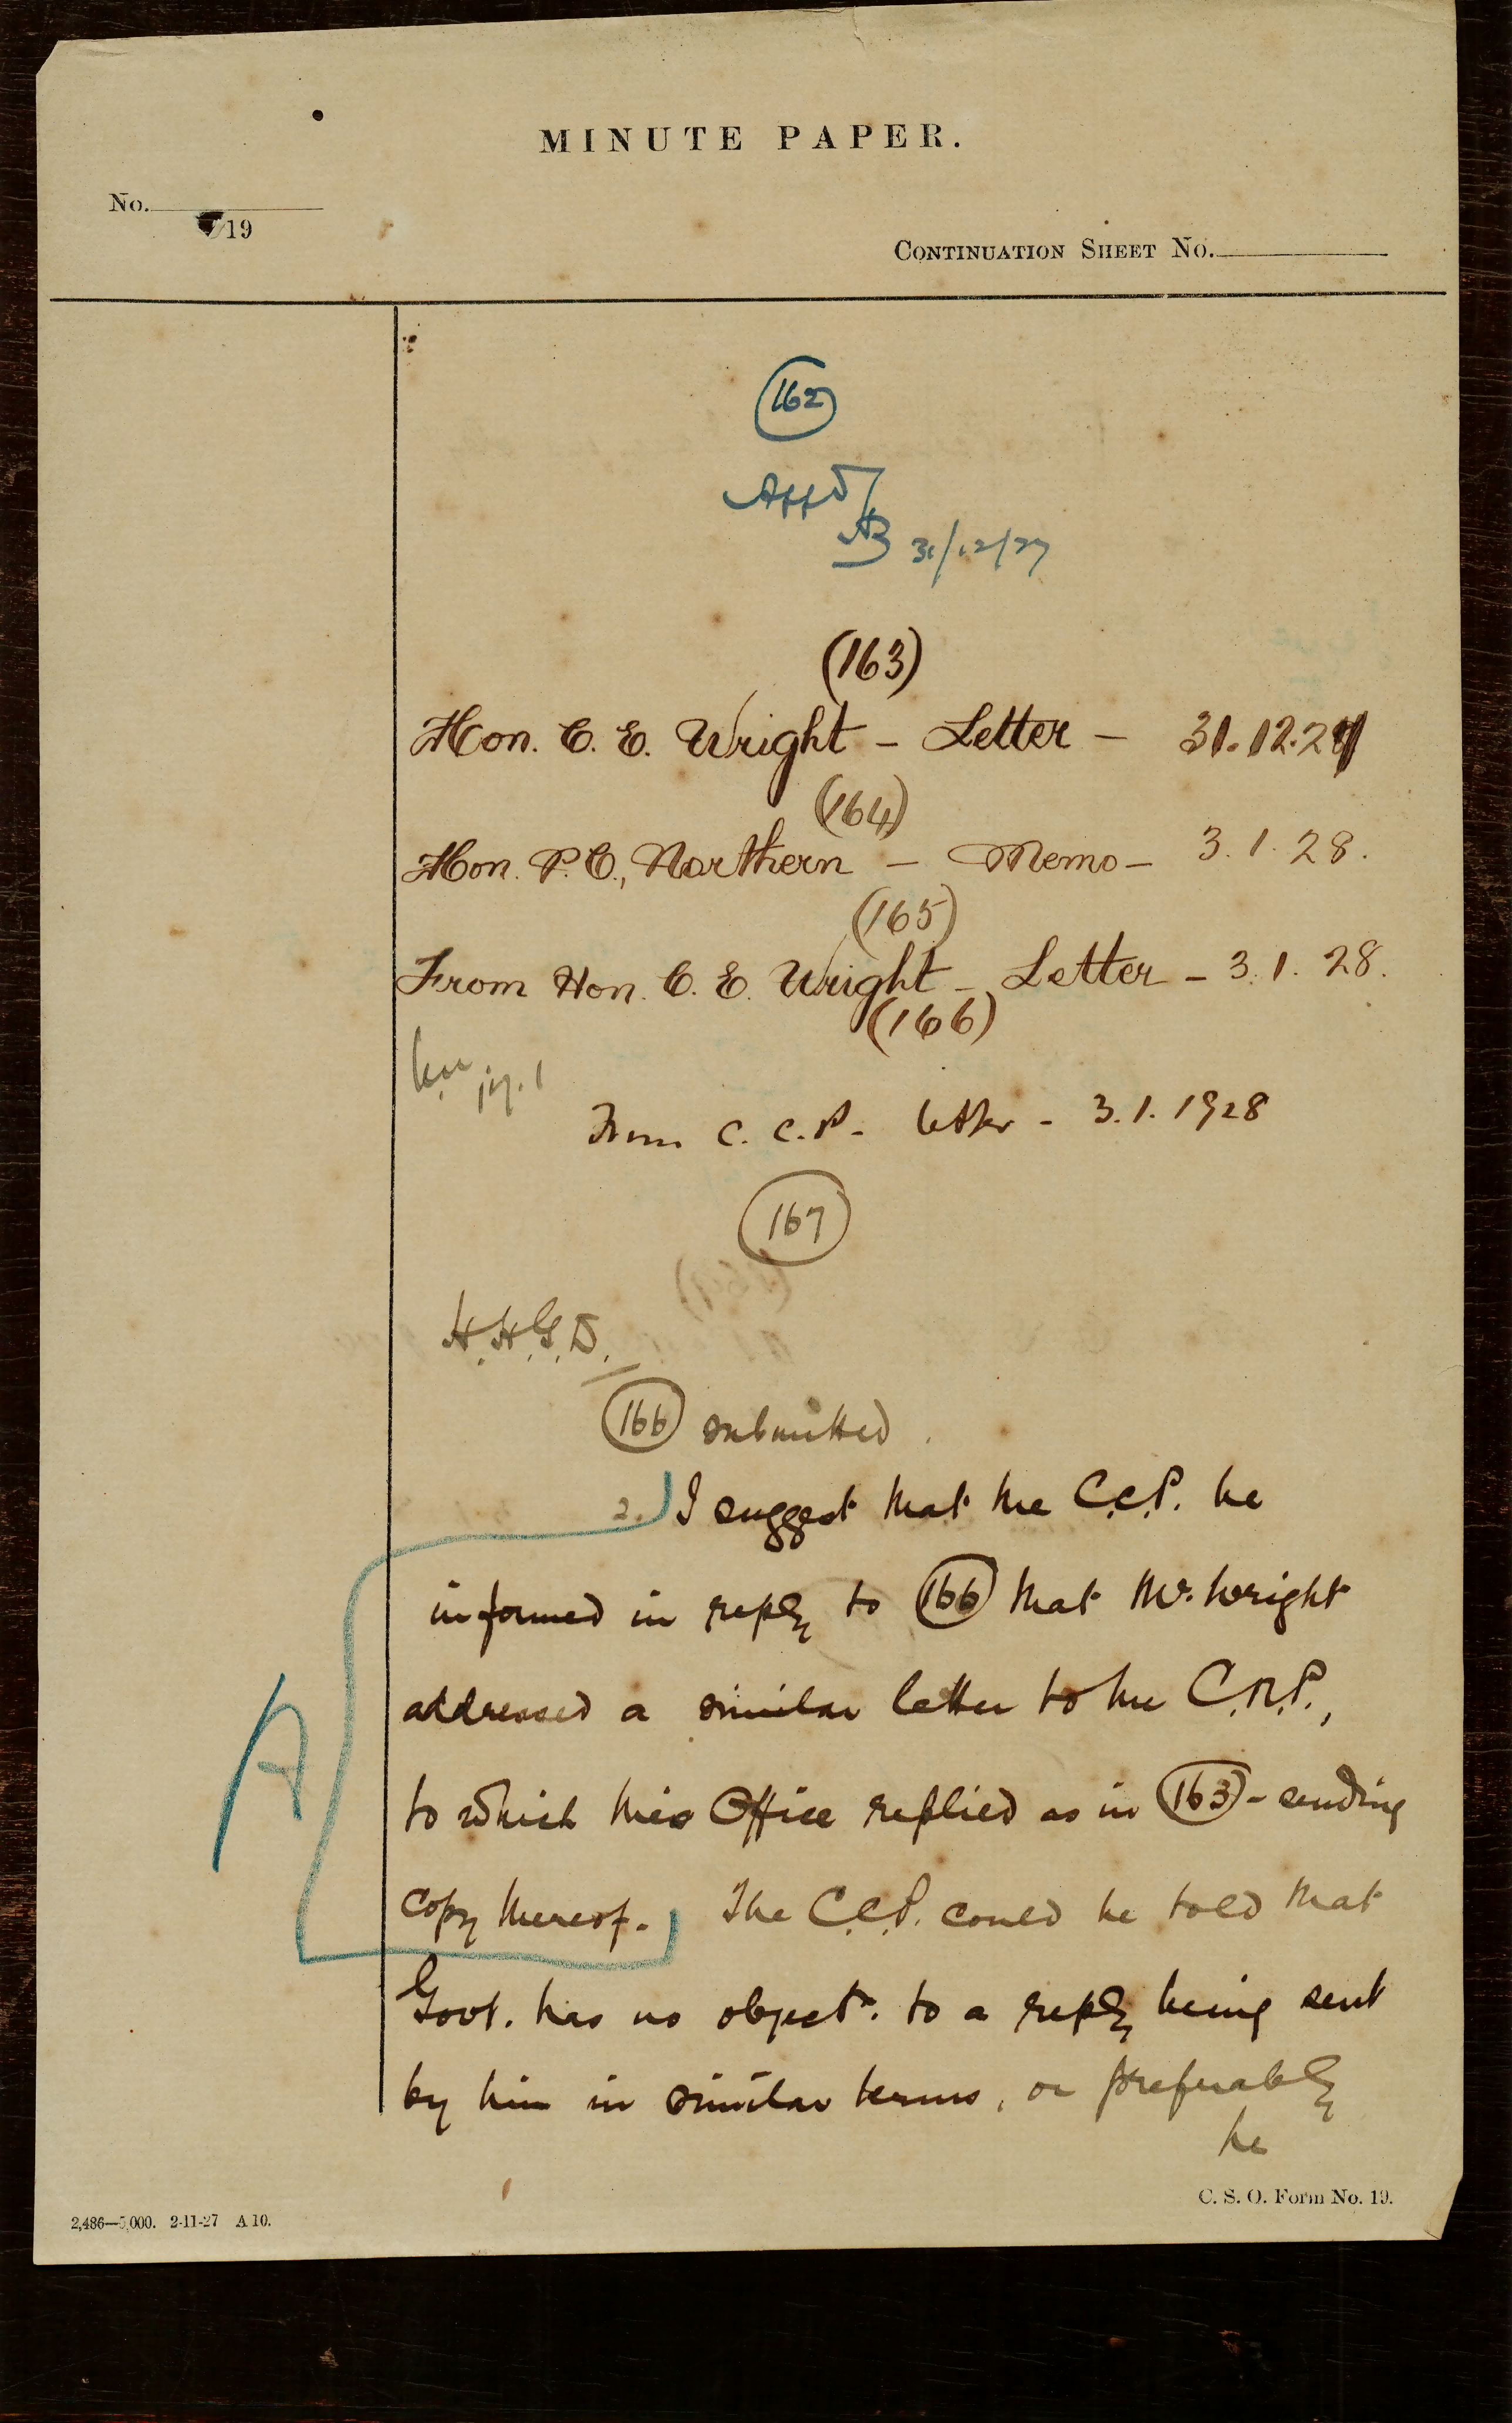 MINUTE PAPER.
No.
19
CONTINUATION SHEET No.
162
Appd/
31/12/27
(163)
Hon. C. E. Wright – Letter – 31.12.27
(164)
Hon. P. C., Northern – Memo – 3.1.28.
(165)
From Hon. C. E. Wright – Letter – 3.1.28.
(166)
From C. C. P. – letter – 3.1.1928
167
H.H.G.D.
166 submitted.
2. I suggest that the C.C.P. be
informed in reply to 166 that Mr. Wright
addressed a similar letter to the C.N.P.,
A
to which this Office replied as in 163 – sending
copy thereof. The C.C.P. could be told that
Govt. has no object: to a reply being sent
by him in similar terms, or preferably
he
C. S. O. Form No. 19.
2,486—5,000. 2-11-27 A 10.